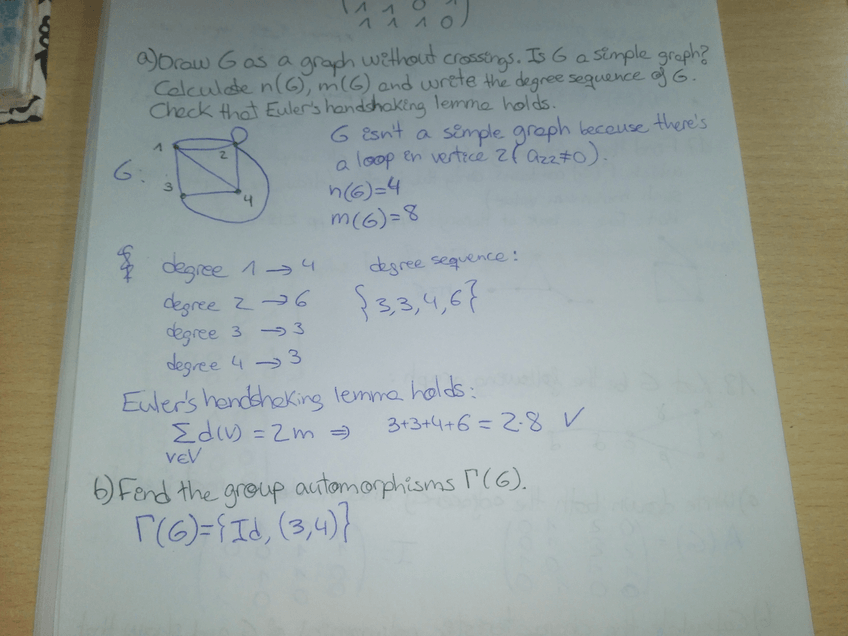 1 1 0 1
1 1 1 0
a) Draw G as a graph without crossings. Is G a simple graph?
Calculate n(G), m(G) and write the degree sequence of G.
Check that Euler's handshaking lemma holds.
G:
1
2
3
4
G isn't a simple graph because there's
a loop in vertice 2 (a₂₂≠0).
n(G)=4
m(G)=8
degree 1 → 4
degree 2 → 6
degree 3 → 3
degree 4 → 3
degree sequence:
{3,3,4,6}
Euler's handshaking lemma holds:
Σ d(v) = 2m ⇒ 3+3+4+6 = 2·8 √
v∈V
b) Find the group automorphisms Γ(G).
Γ(G)={Id, (3,4)}